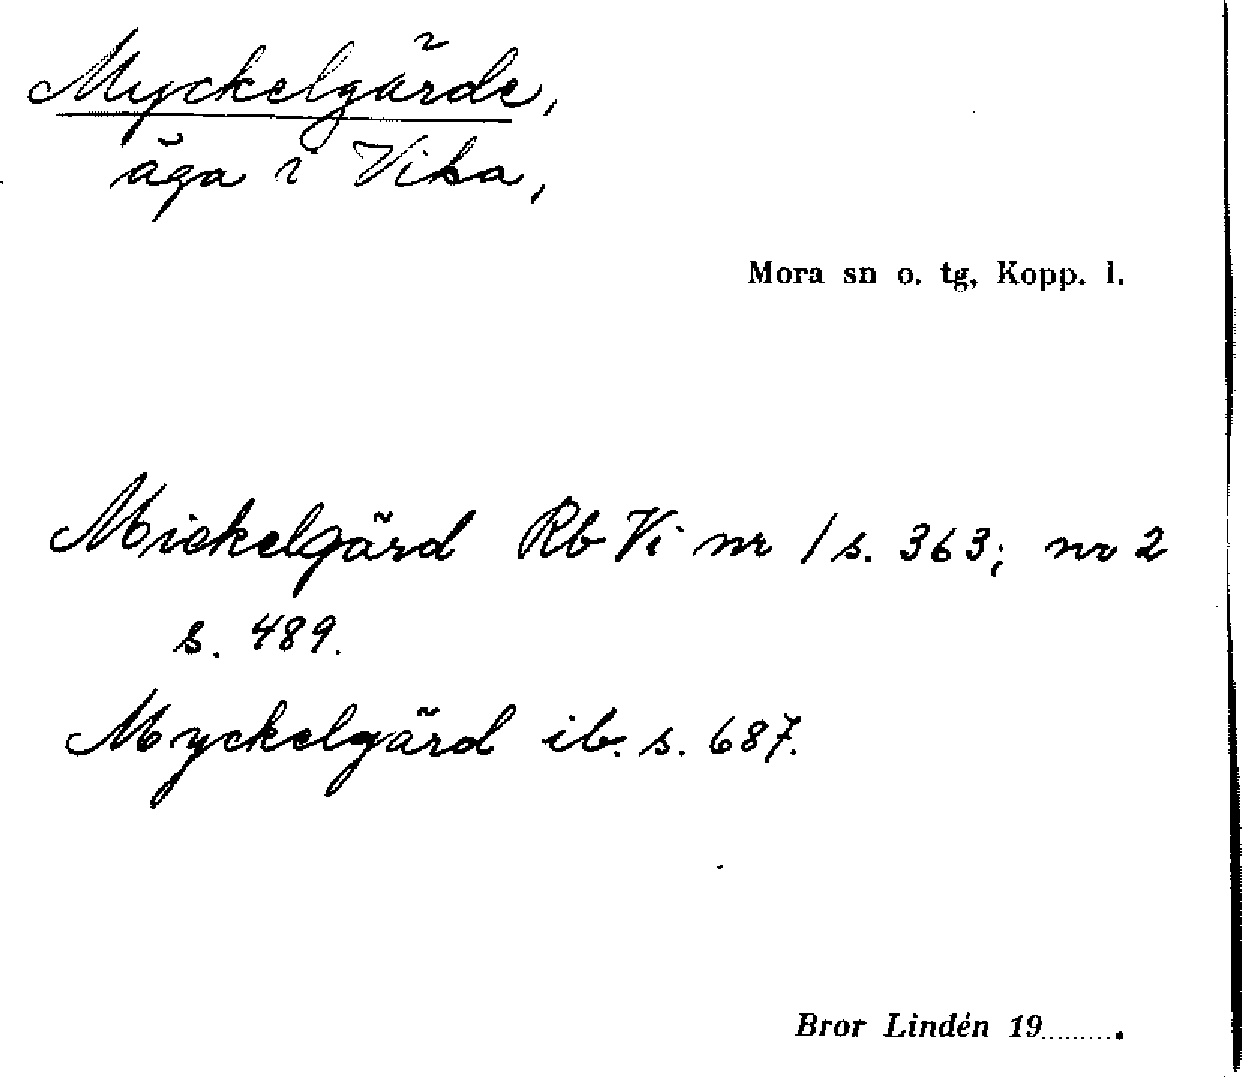 Myckelgärde,
äga i Vika,
Mora sn o. tg, Kopp. l.
Mickelgärd Rb Vi nr 1 s. 363; nr 2
s. 489.
Myckelgärd ib. s. 687.
Bror Lindén 19.........